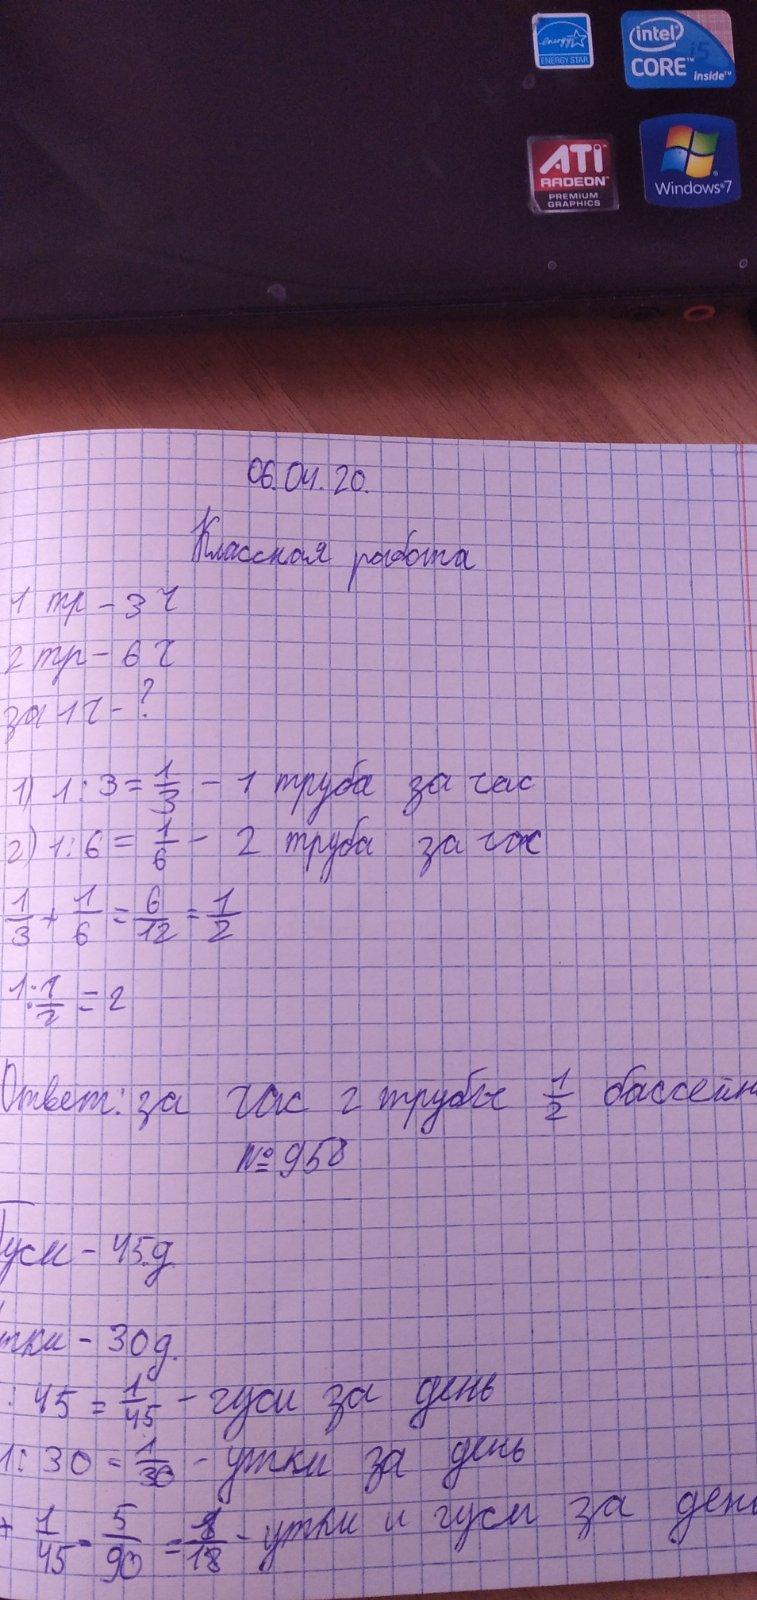 energy
ENERGY STAR
intel
CORE i5
inside
ATI
RADEON
PREMIUM
GRAPHICS
Windows 7
06.04.20.
Классная работа
1 тр - 3 ч
2 тр - 6 ч
за 1 ч - ?
1) 1 : 3 = 1/3 - 1 труба за час
2) 1 : 6 = 1/6 - 2 труба за час
1/3 + 1/6 = 6/12 = 1/2
1 : 1/2 = 2
Ответ: за час 2 трубы 1/2 бассейн
№ 958
Гуси - 45 д.
тки - 30 д.
: 45 = 1/45 - гуси за день
1 : 30 = 1/30 - утки за день
+ 1/45 = 5/90 = 1/18 - утки и гуси за ден